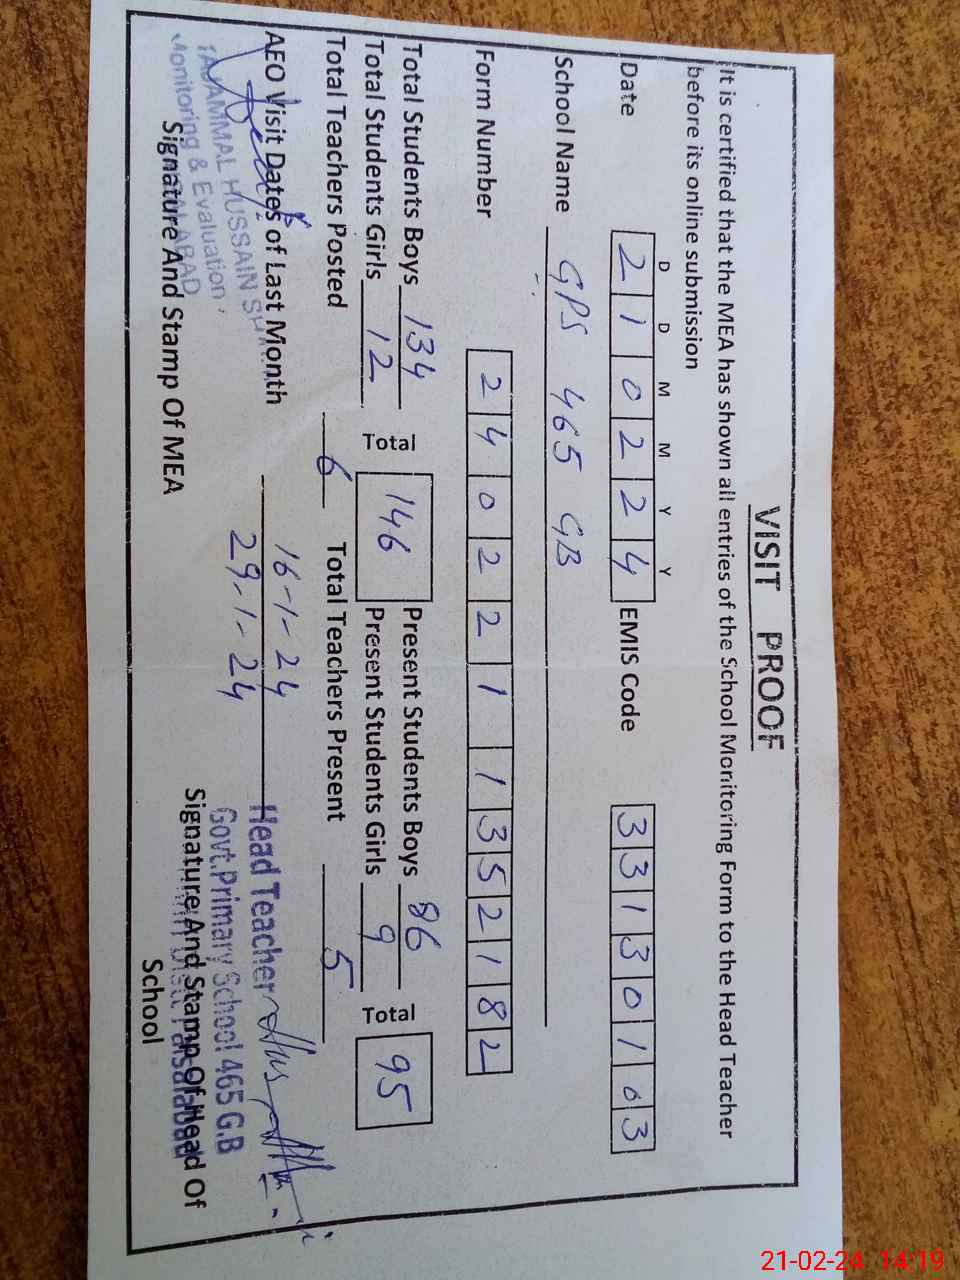 VISIT PROOF
It is certified that the MEA has shown all entries of the School Monitoring Form to the Head Teacher
before its online submission
D D M M Y Y
Date 2 1 0 2 2 4 EMIS Code 3 3 1 3 0 1 0 3
School Name GPS 465 GB
Form Number 2 4 0 2 2 1 1 3 5 2 1 8 2
Total Students Boys 134 Total 146 Present Students Boys 86 Total 95
Total Students Girls 12 Present Students Girls 9
Total Teachers Posted 6 Total Teachers Present 5
AEO Visit Dates of Last Month 16-1-24
29-1-24
TAJAMMAL HUSSAIN
Monitoring & Evaluation,
Signature And Stamp Of MEA
Head Teacher
Govt.Primary School 465 G.B
Signature And Stamp Of Head Of
School
21-02-24 14:19